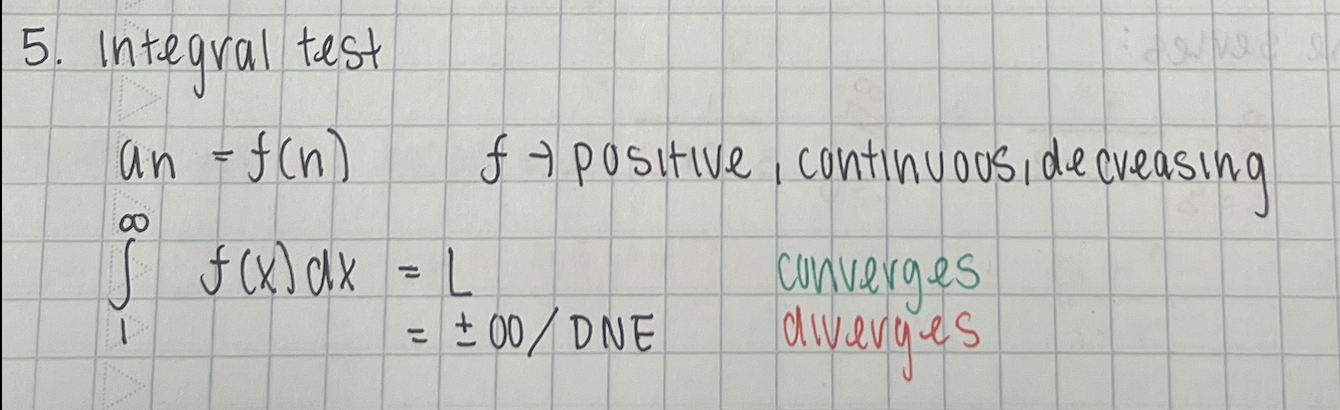 5. Integral test
an = f(n) f → positive, continuous, decreasing
∞
∫ f(x)dx = L converges
1 = ± ∞ / DNE diverges